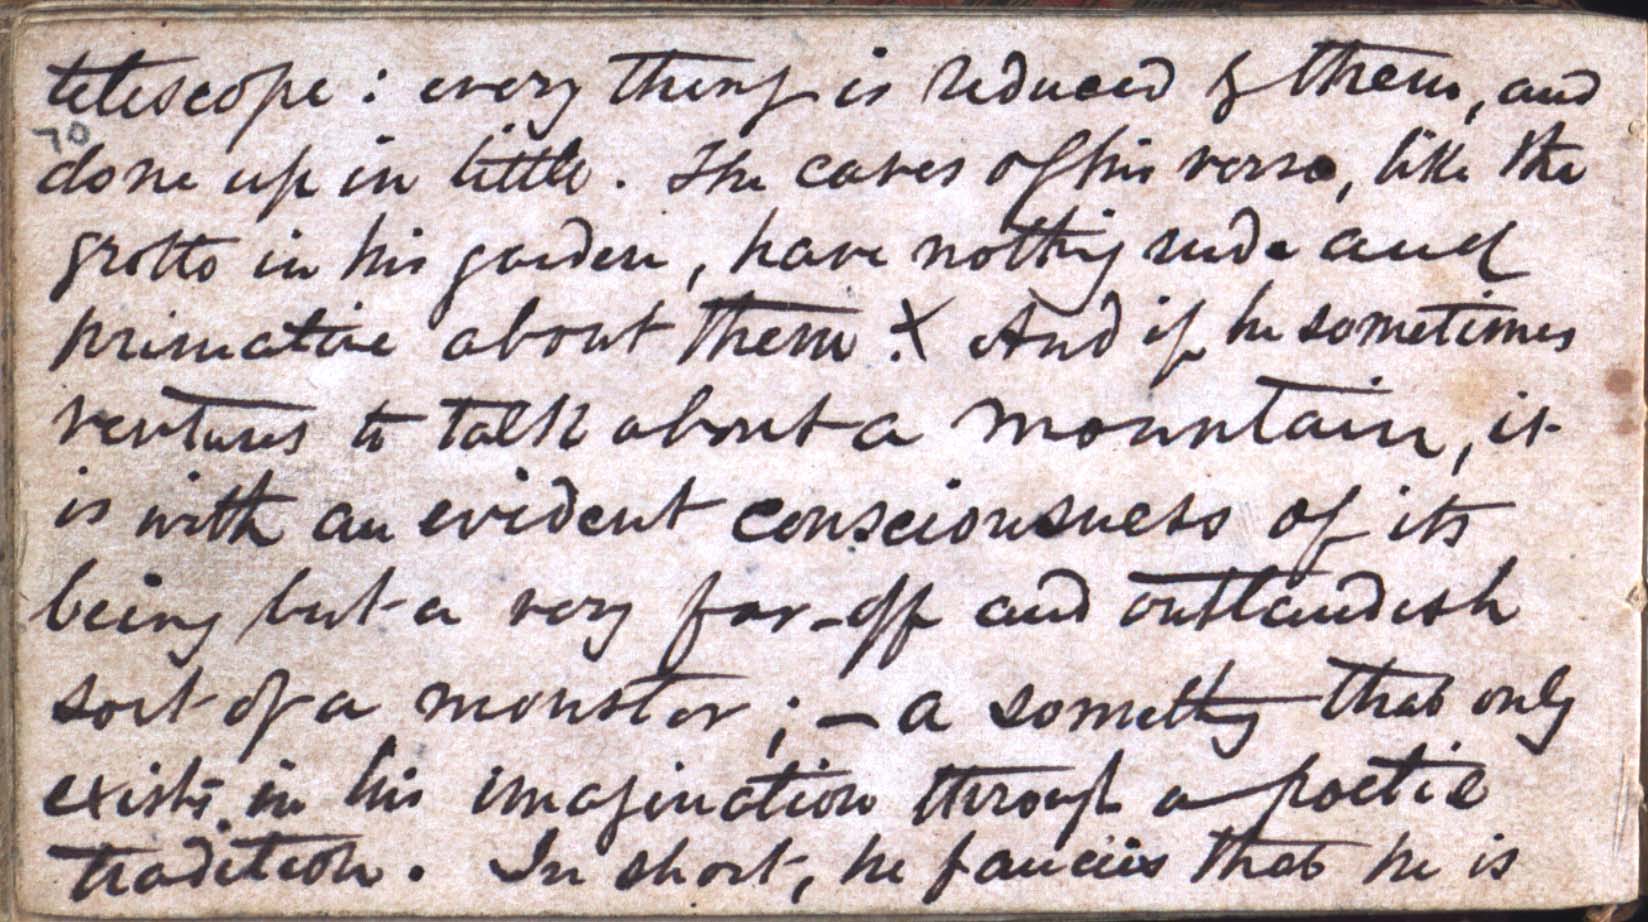 telescope: every thing is reduced by them, and
70
done up in little. The caves of his verse, like the
grotto in his garden, have nothing rude and
primative about them. X And if he sometimes
ventures to talk about a mountain, it
is with an evident consciousness of its
being but a very far-off and outlandish
sort of a monster; – a something that only
exists in his imagination through a poetic
tradition. In short, he fancies that he is